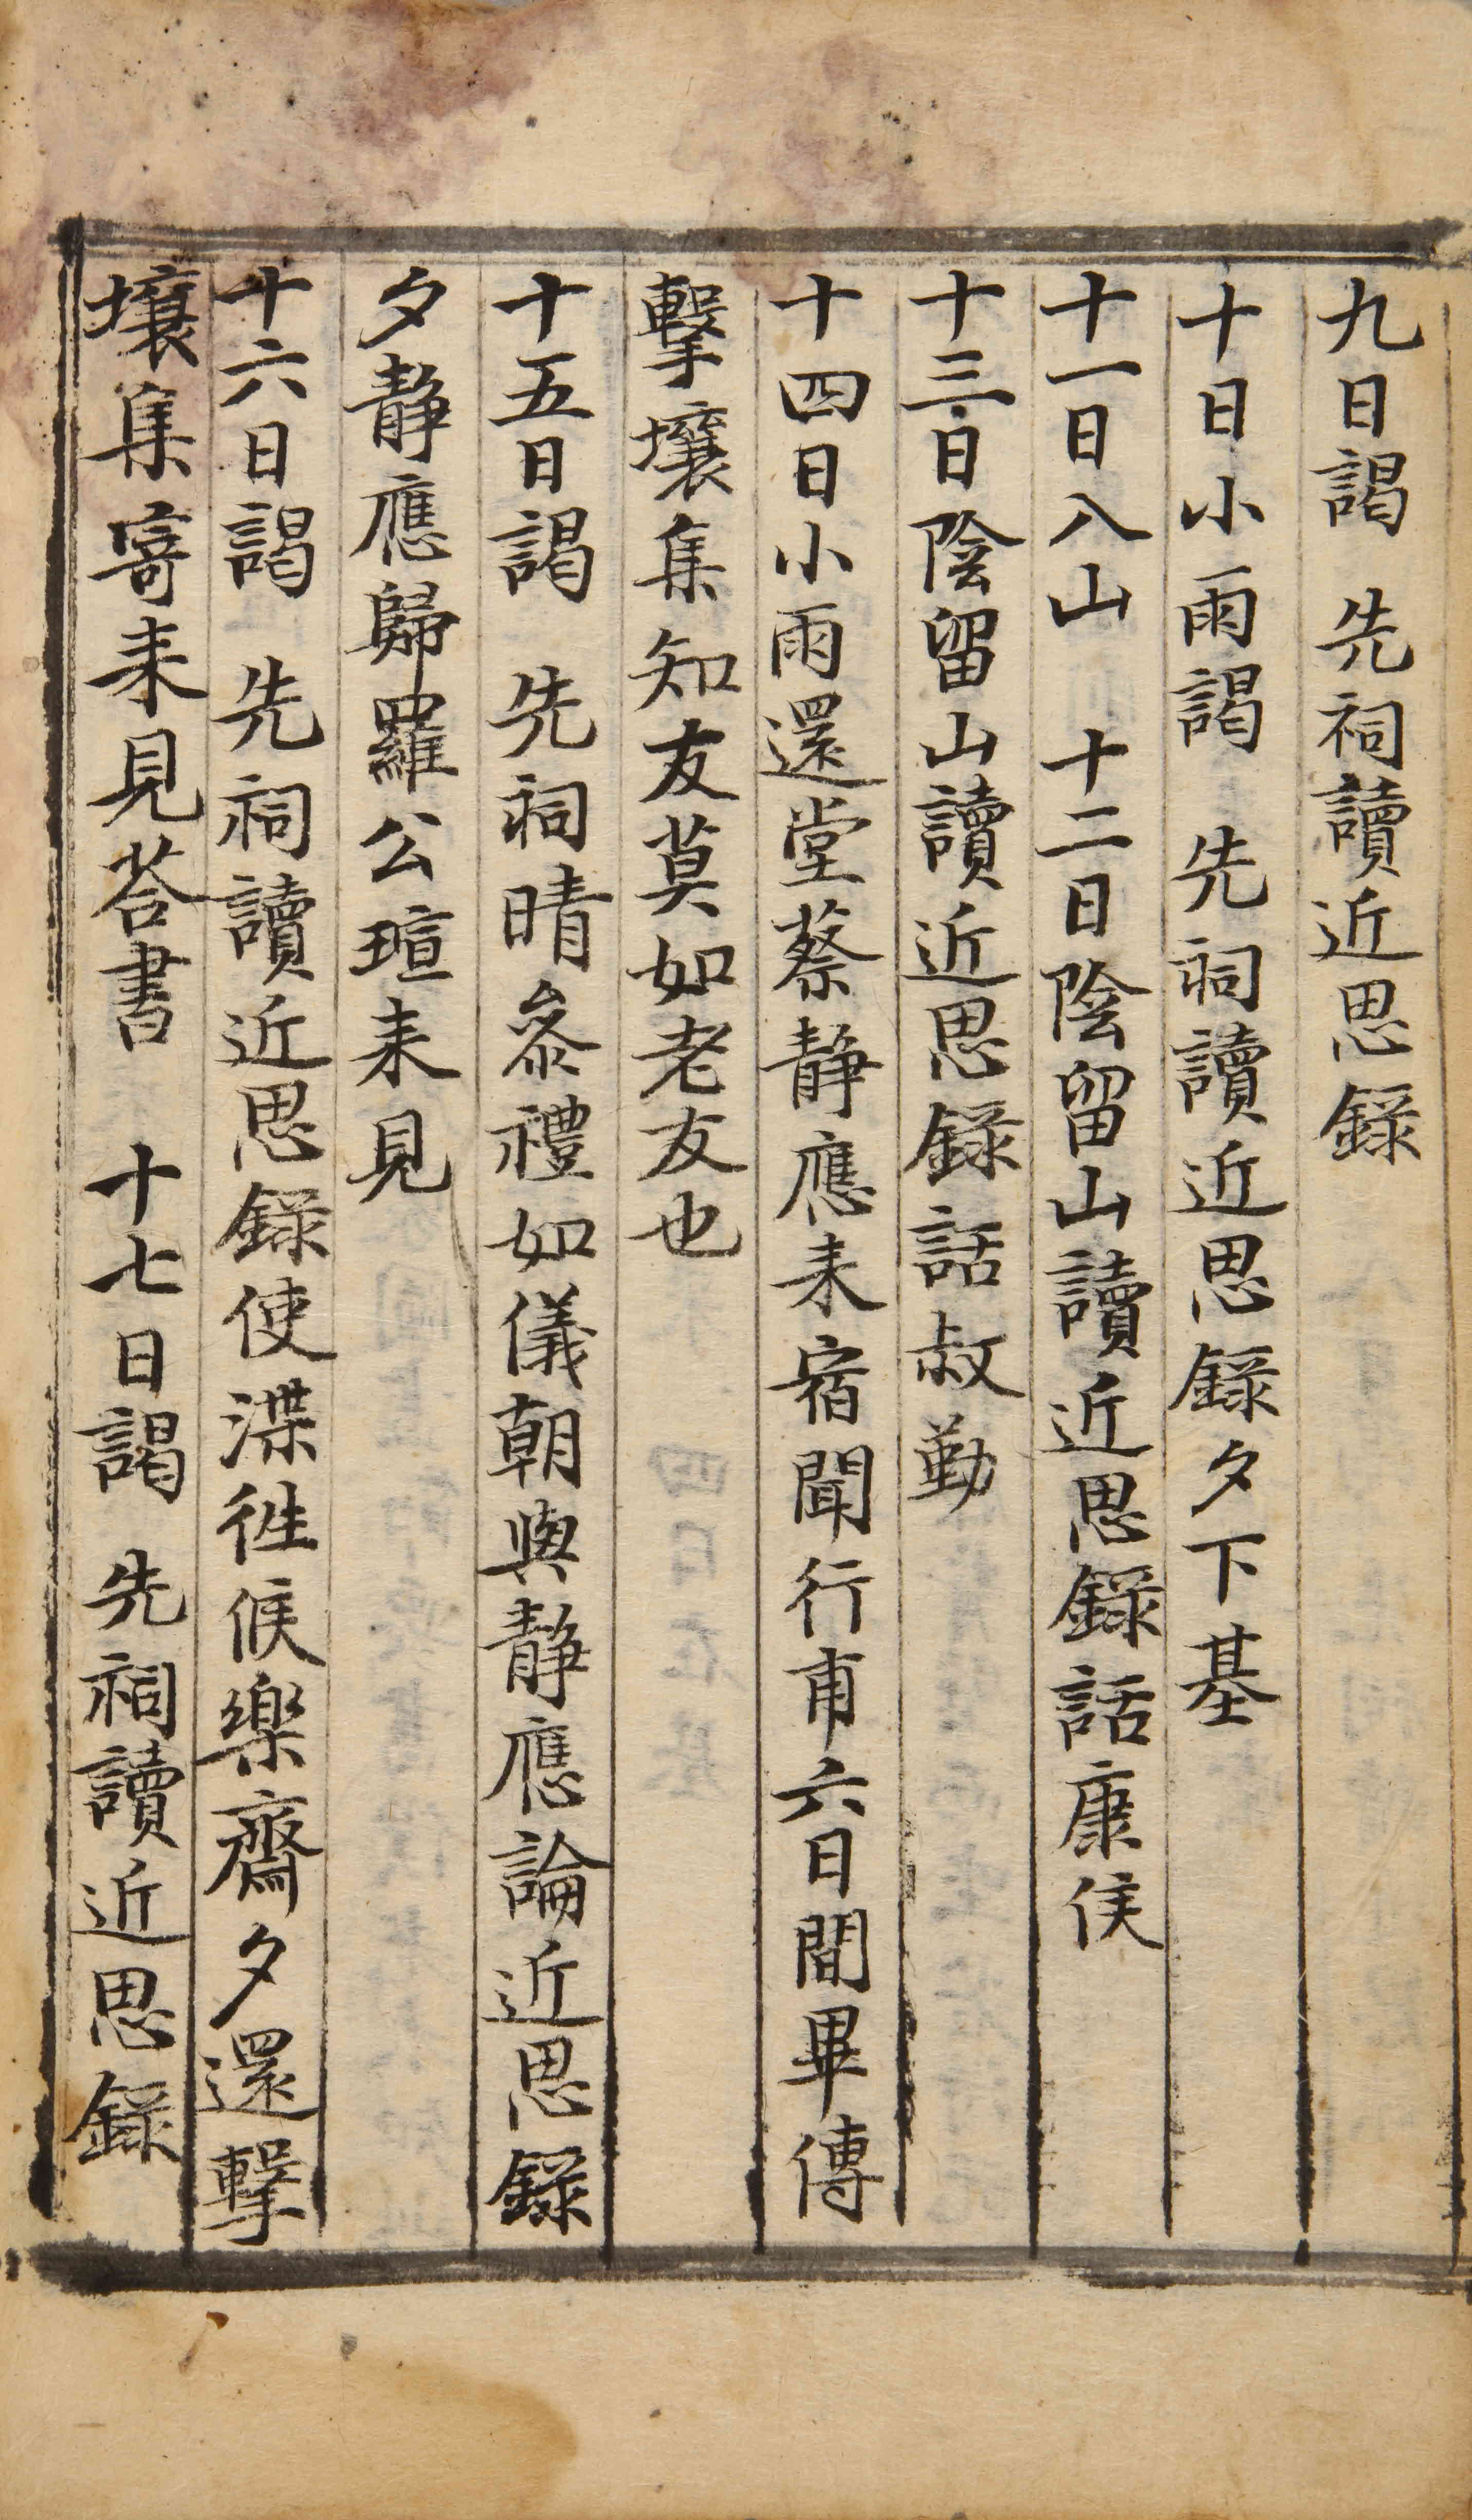 九日謁　先祠讀近思錄
十日小雨謁　先祠讀近思錄夕下基
十一日入山　十二日陰留山讀近思錄話康侯
十三日陰留山讀近思錄話叔勤
十四日小雨還堂蔡靜應来宿聞行甫六日間畢傳
擊壤集知友莫如老友也
十五日謁　先祠晴叅禮如儀朝與靜應論近思錄
夕靜應歸羅公瑄来見
十六日謁　先祠讀近思錄使渫徃候樂齋夕還擊
壤集寄来見荅書　十七日謁　先祠讀近思錄